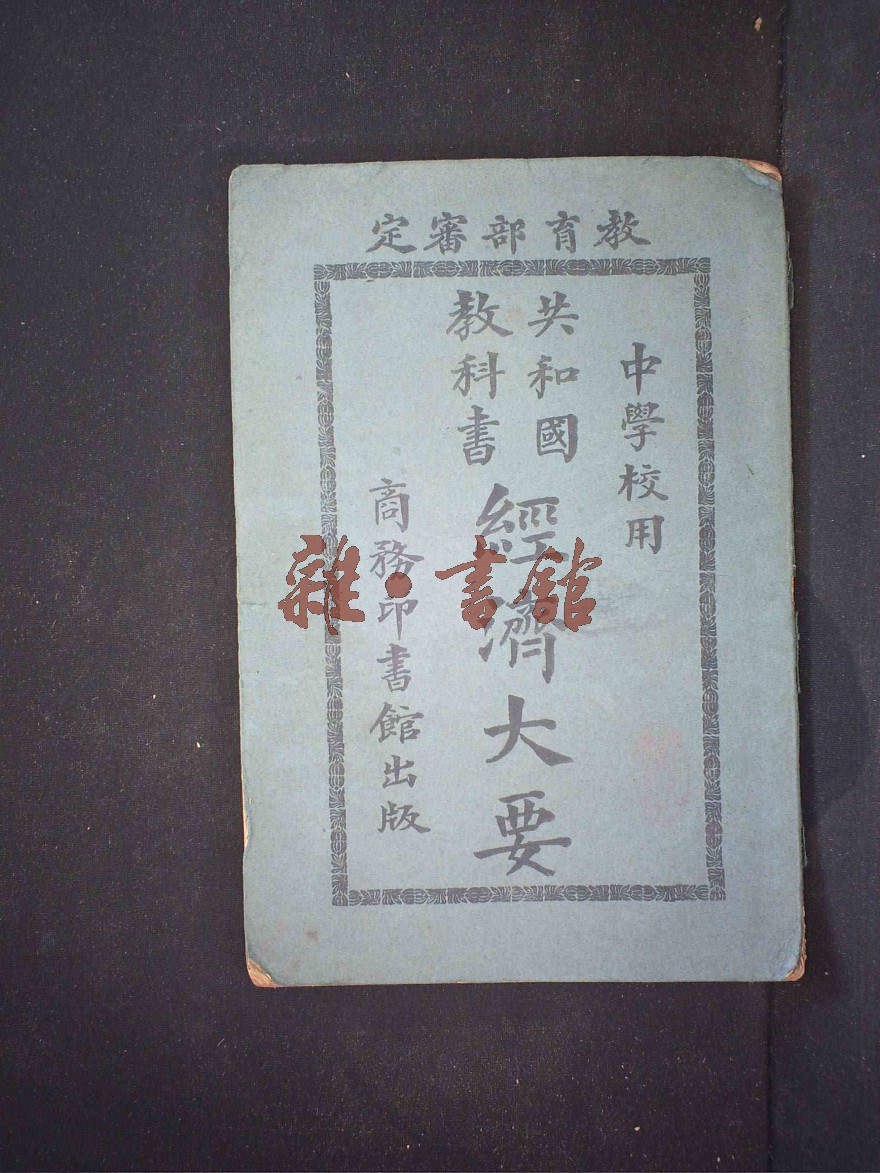 教育部審定
中學校用
共和國
教科書
經濟大要
商務印書館出版
雜·書館